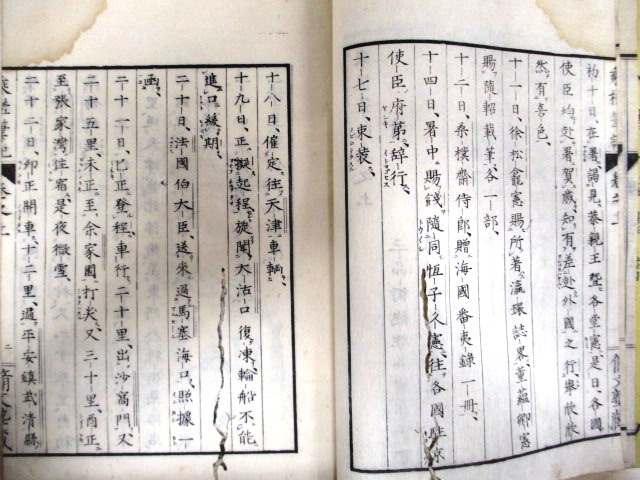 初十日、在署謁見恭親王曁各堂憲、是日、各國
使臣均赴署賀歲、知有差赴外國之行、舉欣欣
然有喜色、
十一日、徐松龕憲賜所著瀛環誌畧、董蘊卿憲
賜隨軺載筆各一部、
十二日、秦樸齋侍郎贈海國番夷錄一冊、
十四日、署中賜餞、隨同恆子久憲、往各國駐京
使臣府第辭行、
十七日、束裝、
十八日、僱定往天津車輛、
十九日、正擬起程、旋聞大沽口復凍、輪船不能
進口、緩期、
二十日、法國伯大臣送來過馬塞海口照據一
函、
二十一日、巳正登程、車行二十里、出沙窩門、又
二十五里、未正至余家圍打尖、又三十里、酉正
至張家灣住宿、是夜微雪、
二十二日、卯正開車、十二里、過平安鎮武清縣
乘槎筆記